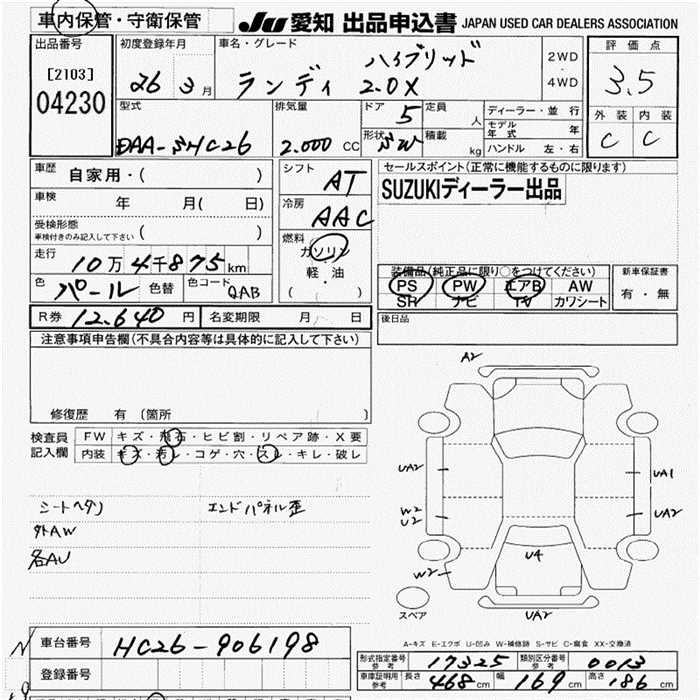 車内保管・守衛保管
JU 愛知 出品申込書 JAPAN USED CAR DEALERS ASSOCIATION
出品番号
[2103]
04230
初度登録年月
26 3月
車名・グレード
ハイブリッド
ランディ 2.0X
2WD
・
4WD
評価点
3.5
外装 内装
C C
型式
DAA-SHC26
排気量
2.000 CC
ドア 5
形状 SW
定員 人
積載 kg
ディーラー・並行
モデル年式 年
ハンドル 左・右
車歴 自家用・( )
車検 年 月( 日)
受検形態
車検付きのみ記入して下さい ( )
走行 10万4千875km
色 パール 色替 色コード QAB
シフト AT
冷房 AAC
燃料
ガソリン
・
軽・油
( )
セールスポイント(正常に機能するものに限ります)
SUZUKIディーラー出品
装備品(純正品に限り○をつけてください)
PS PW エアB AW
SR ナビ TV カワシート
新車保証書
有・無
R券 12.640円 名変期限 月 日
後日品
注意事項申告欄(不具合内容等は具体的に記入して下さい)
修復歴 有(箇所 )
検査員記入欄
FW キズ・飛石・ヒビ割・リペア跡・X要
内装 キズ・汚レ・コゲ・穴・スレ・キレ・破レ
シートヘタリ エンドパネル歪
外AW
各AU
A2
UA2
UA1
W2
U2
UA2
W2
U4
UA2
スペア
A-キズ E-エクボ U-凹み W-補修跡 S-サビ C-腐食 XX-交換済
車台番号 HC26-906198
登録番号
形式指定番号 参考 17325 類別区分番号 参考 0013
車庫証明用 参考 長さ 468cm 幅 169cm 高さ 186cm